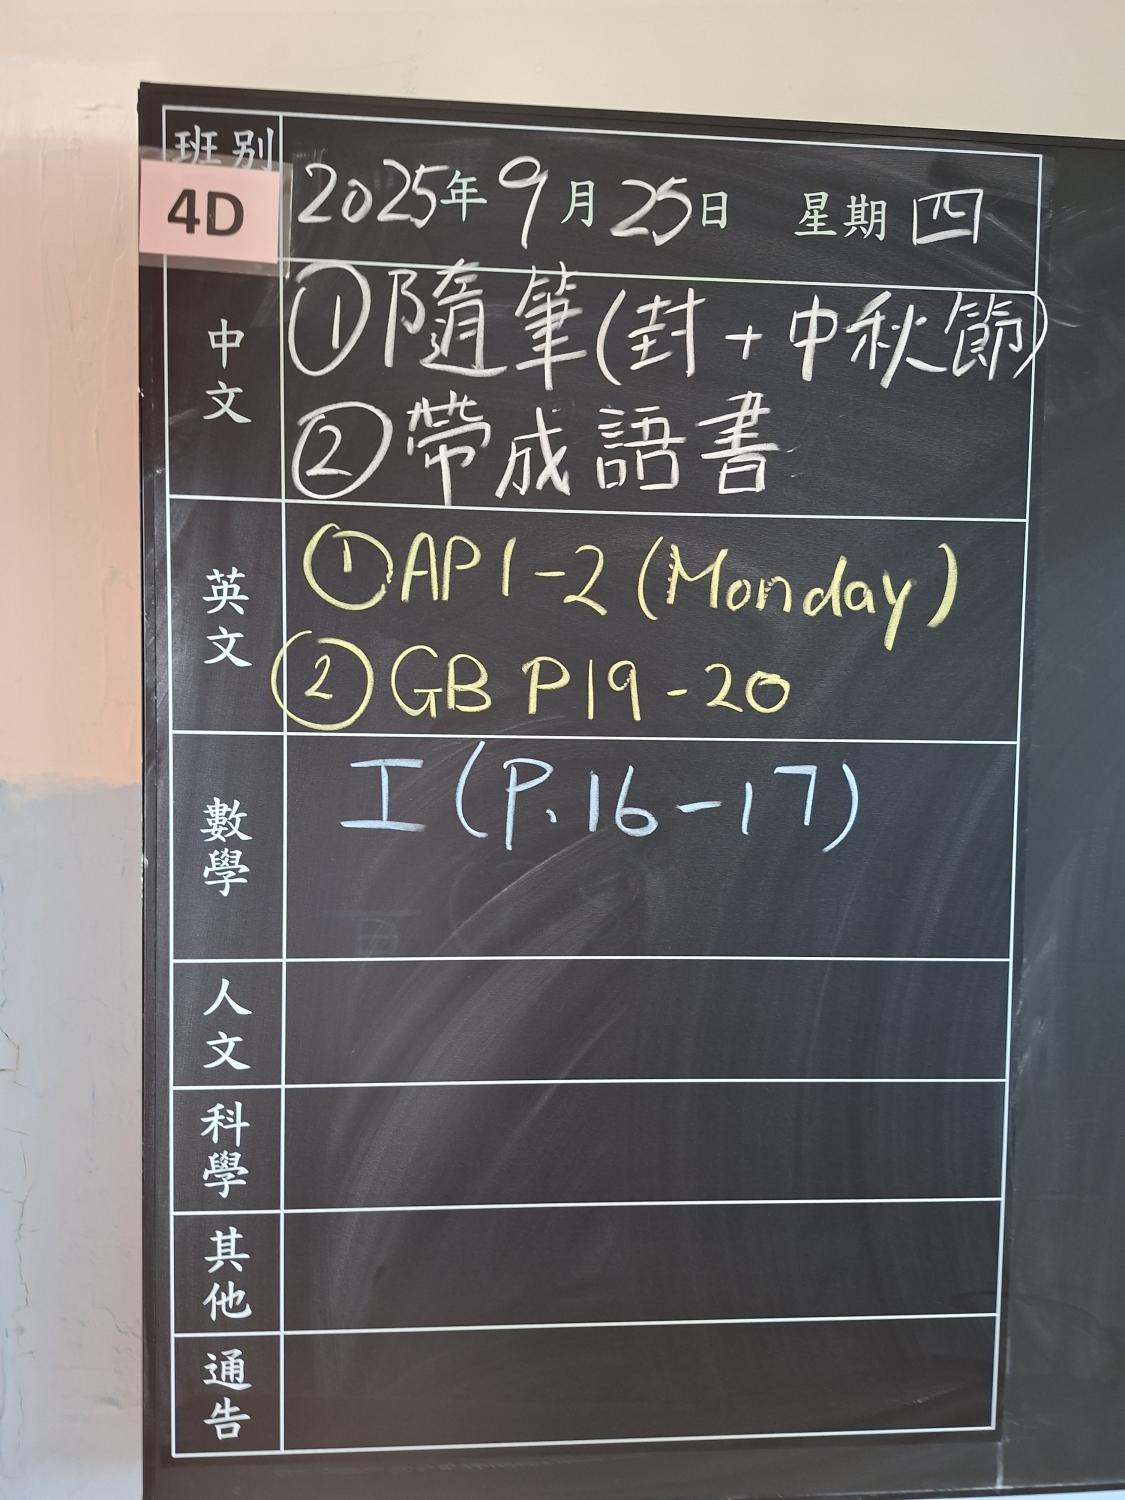 班別
4D
2025年9月25日 星期四
中文
①隨筆(封+中秋節)
②帶成語書
英文
①AP1-2(Monday)
②GB P19-20
數學
工(P.16-17)
人文
科學
其他
通告